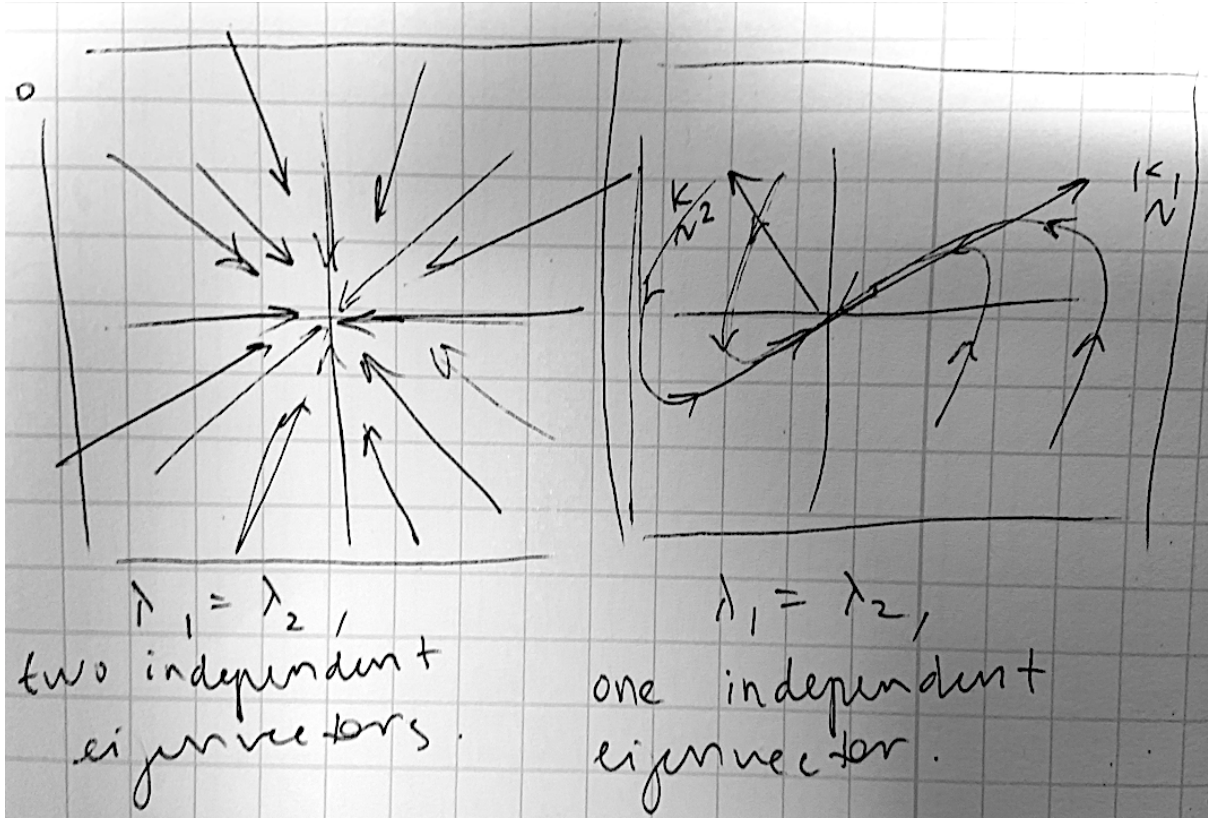 K₂
K₁
λ₁ = λ₂,
two independent
eigenvectors.
λ₁ = λ₂,
one independent
eigenvector.